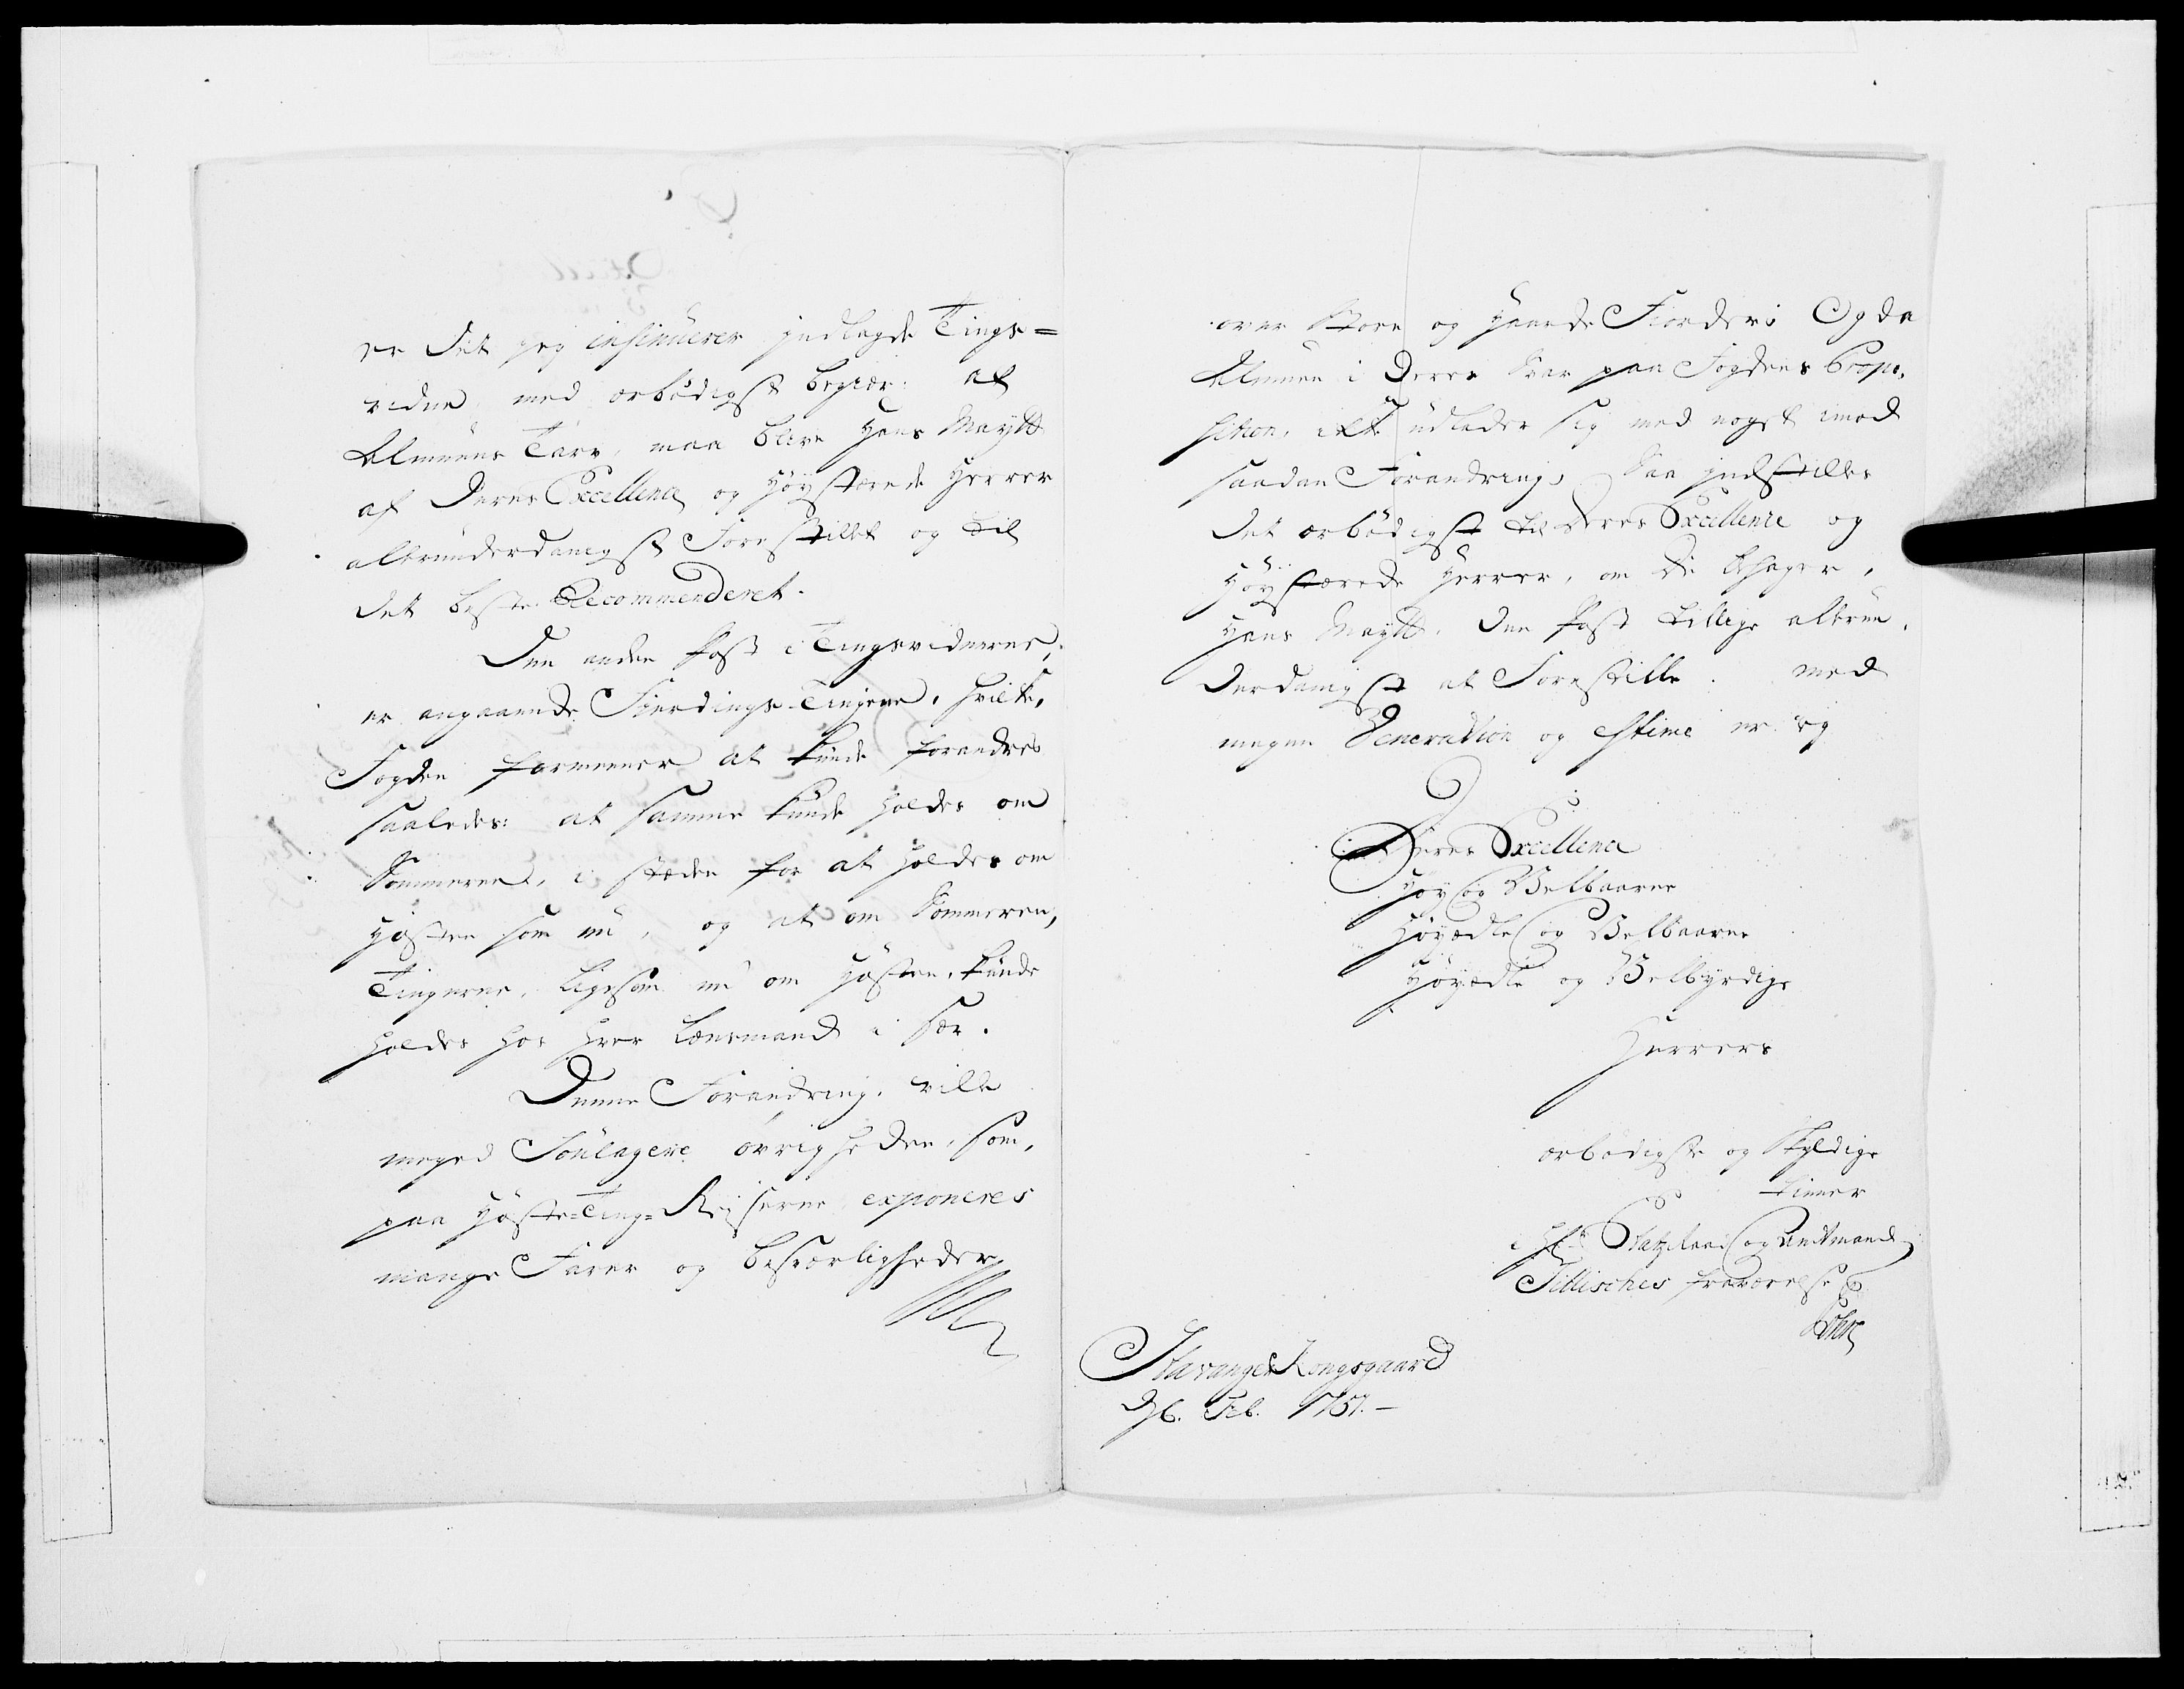 er det jeg insinuerer indlagde Tings=
vidne med ærbödigst begiær: at
Almuens Tarv, maa blive Hans Maytt
af Deres Excellence og Höystærede Herrer
allerunderdanigst Forestillet og til
det beste Recommenderet.
Den anden Post i Tingsvidnerne,
er angaaende Fierdings-Tingene, hvilke,
Fogden formeener at kunde forandres
saaledes: at samme kunde holdes om
Sommeren, i stæden for at holdes om
Hösten som nu, og at om Sommeren,
Tingerne, ligesom nu om Hösten, kunde
holdes hos hver Lænsmand i sær.
Denne Forandring, ville
meged Soulagere övrigheden, som,
paa Höste=Ting=Reyserne exponeres
mange Farer og besværligheder
over store og Haarde Fiorder: Og da
Almuen i Deres Svar paa Fogdens Propo,
sition, ikke udlader sig med noget imod
saadan Forandring, Saa indstilles
det ærbödigst til Deres Excellence og
Höystærede Herrer, om De behager,
Hans Maytt. den Post tillige allerun,
derdanigst at Forestille. med
megen Veneration og estime er ieg
Deres Excellence
Höy og Velbaarne
Höyædle og Velbaarne
Höyædle og Velbyrdige
Herrers
ærbödigste og skyldige
tiener
i Hr Etatzraad og Amtmand
Tillisches fraværelse
Stavanger Kongsgaard
d 6. Feb. 1757.-